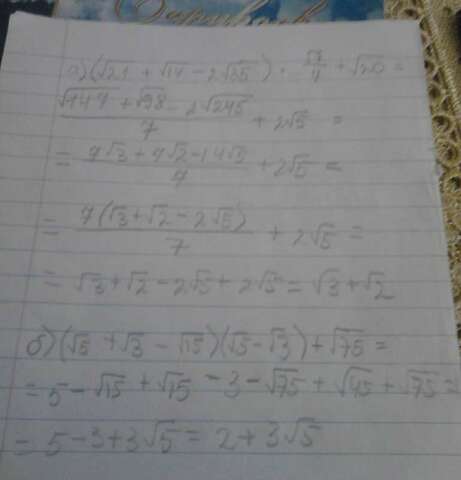 а) (√21 + √14 - 2√35) · √7/7 + √20 =
(√147 + √98 - 2√245)/7 + 2√5 =
= (7√3 + 7√2 - 14√5)/7 + 2√5 =
= 7(√3 + √2 - 2√5)/7 + 2√5 =
= √3 + √2 - 2√5 + 2√5 = √3 + √2
б) (√5 + √3 - √15)(√5 - √3) + √75 =
= 5 - √15 + √15 - 3 - √75 + √45 + √75 =
= 5 - 3 + 3√5 = 2 + 3√5